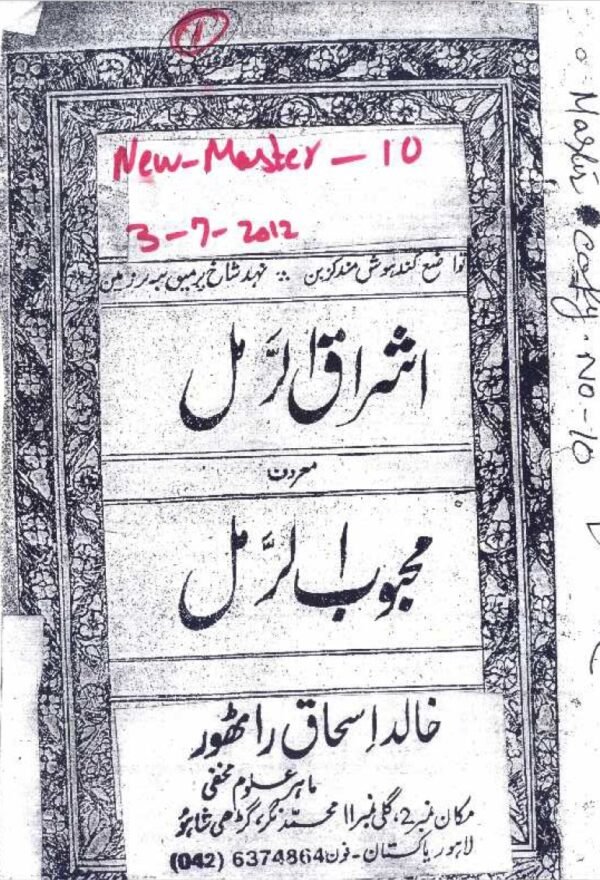 1
New-Master-10
3-7-2012
تواضع کند ہوش مند گزین ؞ نہد شاخ پر میوہ سر بر زمین
اشراق الرَّمل
معروف
محبوب الرَّمل
خالد اِسحاق راٹھور
ماہر علومِ مخفی
مکان نمبر 2، گلی نمبر 11 محمّد نگر، گڑھی شاہو
لاہور پاکستان - فون 6374864 (042)
Master copy. NO-10